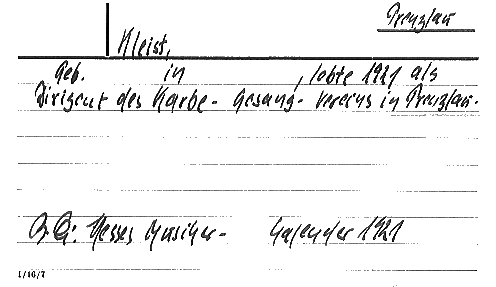 Prenzlau
Kleist,
Geb. in , lebte 1921 als
Dirigent des Karbe- Gesang- Vereins in Prenzlau.
Hesses Musiker- Kalender 1921
1/16/7